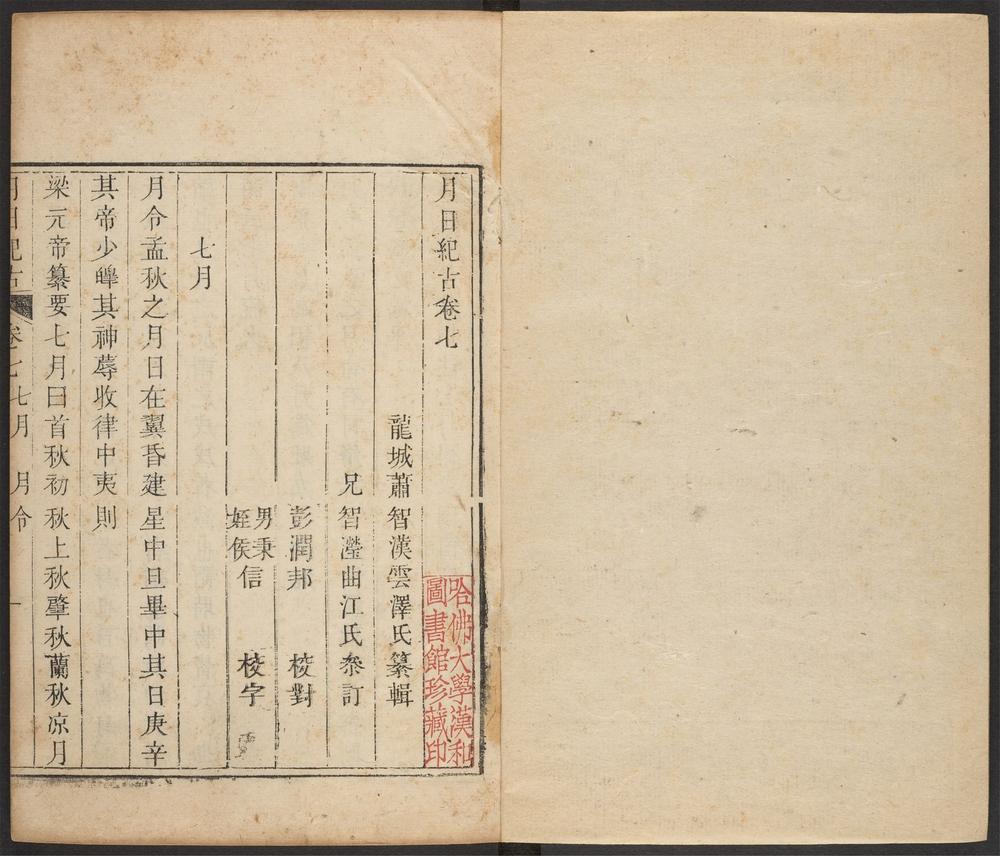 月日紀古卷七
龍城蕭智漢雲澤氏纂輯
兄智瀅曲江氏叅訂
彭潤邦 校對
男秉信
姪侯
校字
七月
月令孟秋之月日在翼昏建星中旦畢中其日庚辛
其帝少皞其神蓐收律中夷則
梁元帝纂要七月曰首秋初秋上秋肇秋蘭秋凉月
月日紀古 卷七 七月 月令 一
哈佛大學漢和
圖書館珍藏印